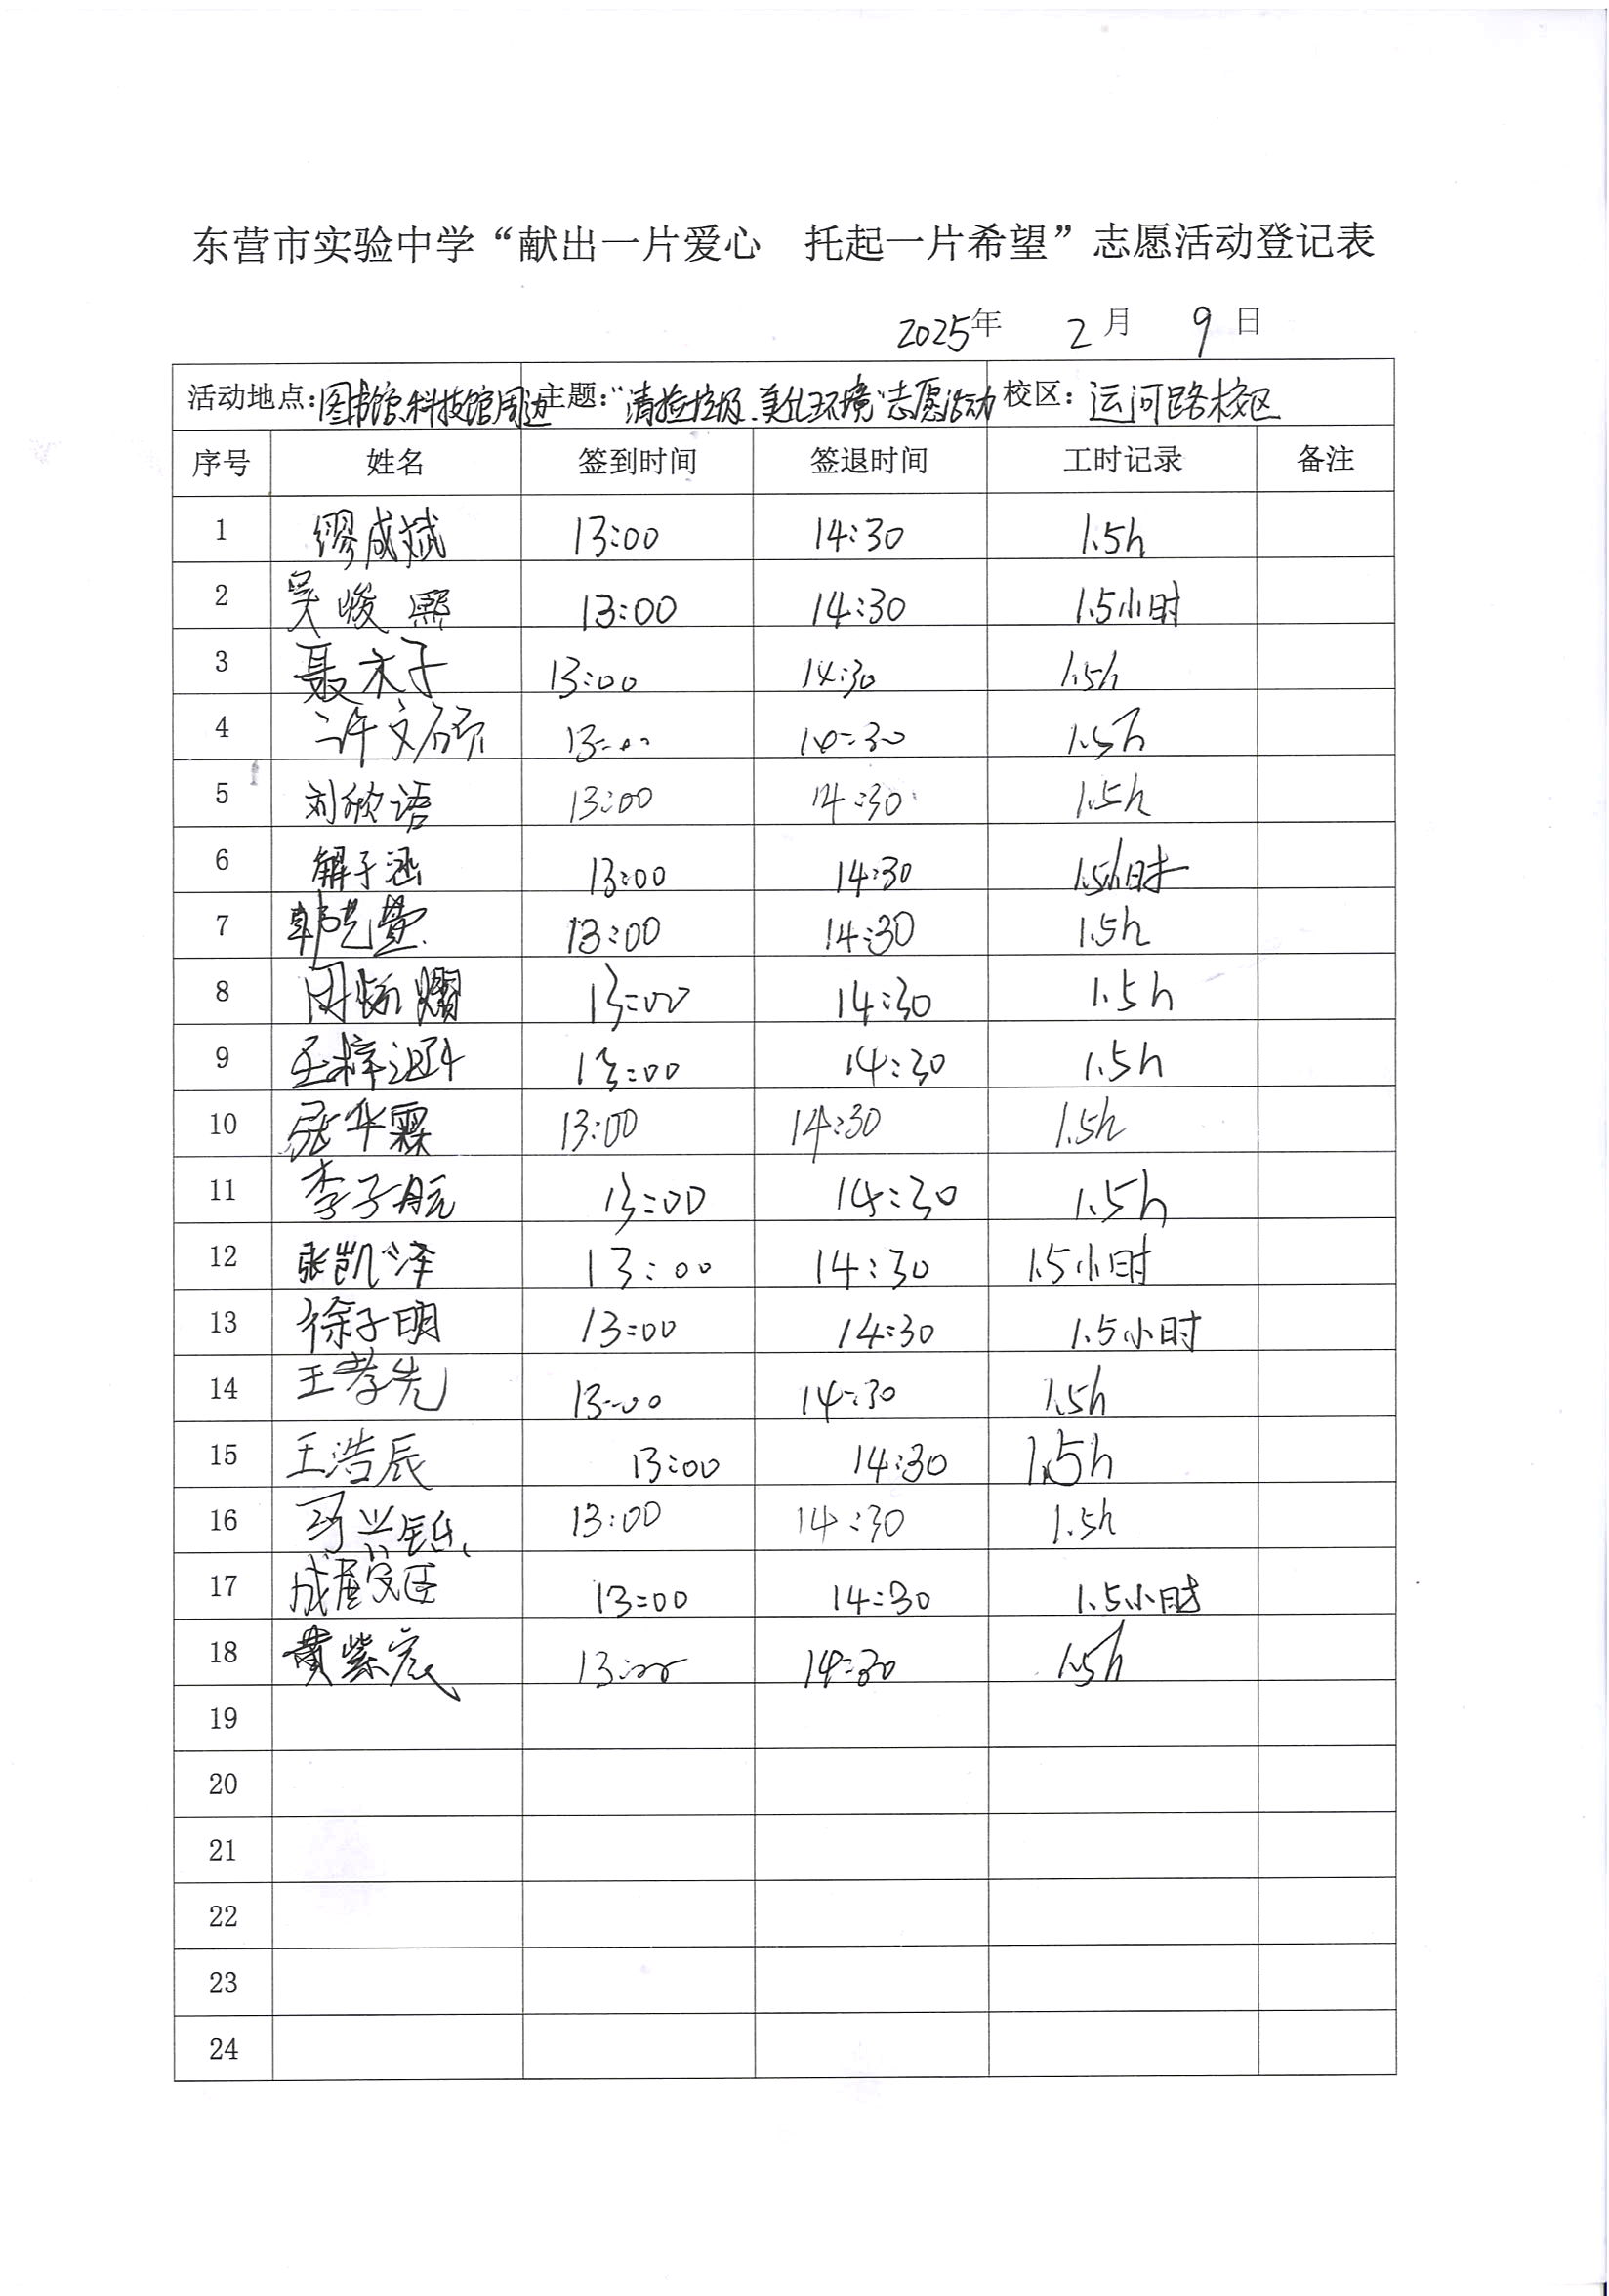 东营市实验中学“献出一片爱心 托起一片希望”志愿活动登记表
2025年 2月 9日
活动地点:图书馆、科技馆周边 主题:“清捡垃圾、美化环境”志愿活动 校区:运河路校区
序号 姓名 签到时间 签退时间 工时记录 备注
1 缪成斌 13:00 14:30 1.5h
2 吴峻熙 13:00 14:30 1.5小时
3 聂木子 13:00 14:30 1.5h
4 许文硕 13:00 14:30 1.5h
5 刘欣语 13:00 14:30 1.5h
6 解子涵 13:00 14:30 1.5小时
7 韩艺萱 13:00 14:30 1.5h
8 周炳熠 13:00 14:30 1.5h
9 王梓 13:00 14:30 1.5h
10 张华霖 13:00 14:30 1.5h
11 李子航 13:00 14:30 1.5h
12 张凯泽 13:00 14:30 1.5小时
13 徐子明 13:00 14:30 1.5小时
14 王孝先 13:00 14:30 1.5h
15 王浩辰 13:00 14:30 1.5h
16 13:00 14:30 1.5h
17 13:00 14:30 1.5小时
18 黄紫宸 13:00 14:30 1.5h
19
20
21
22
23
24